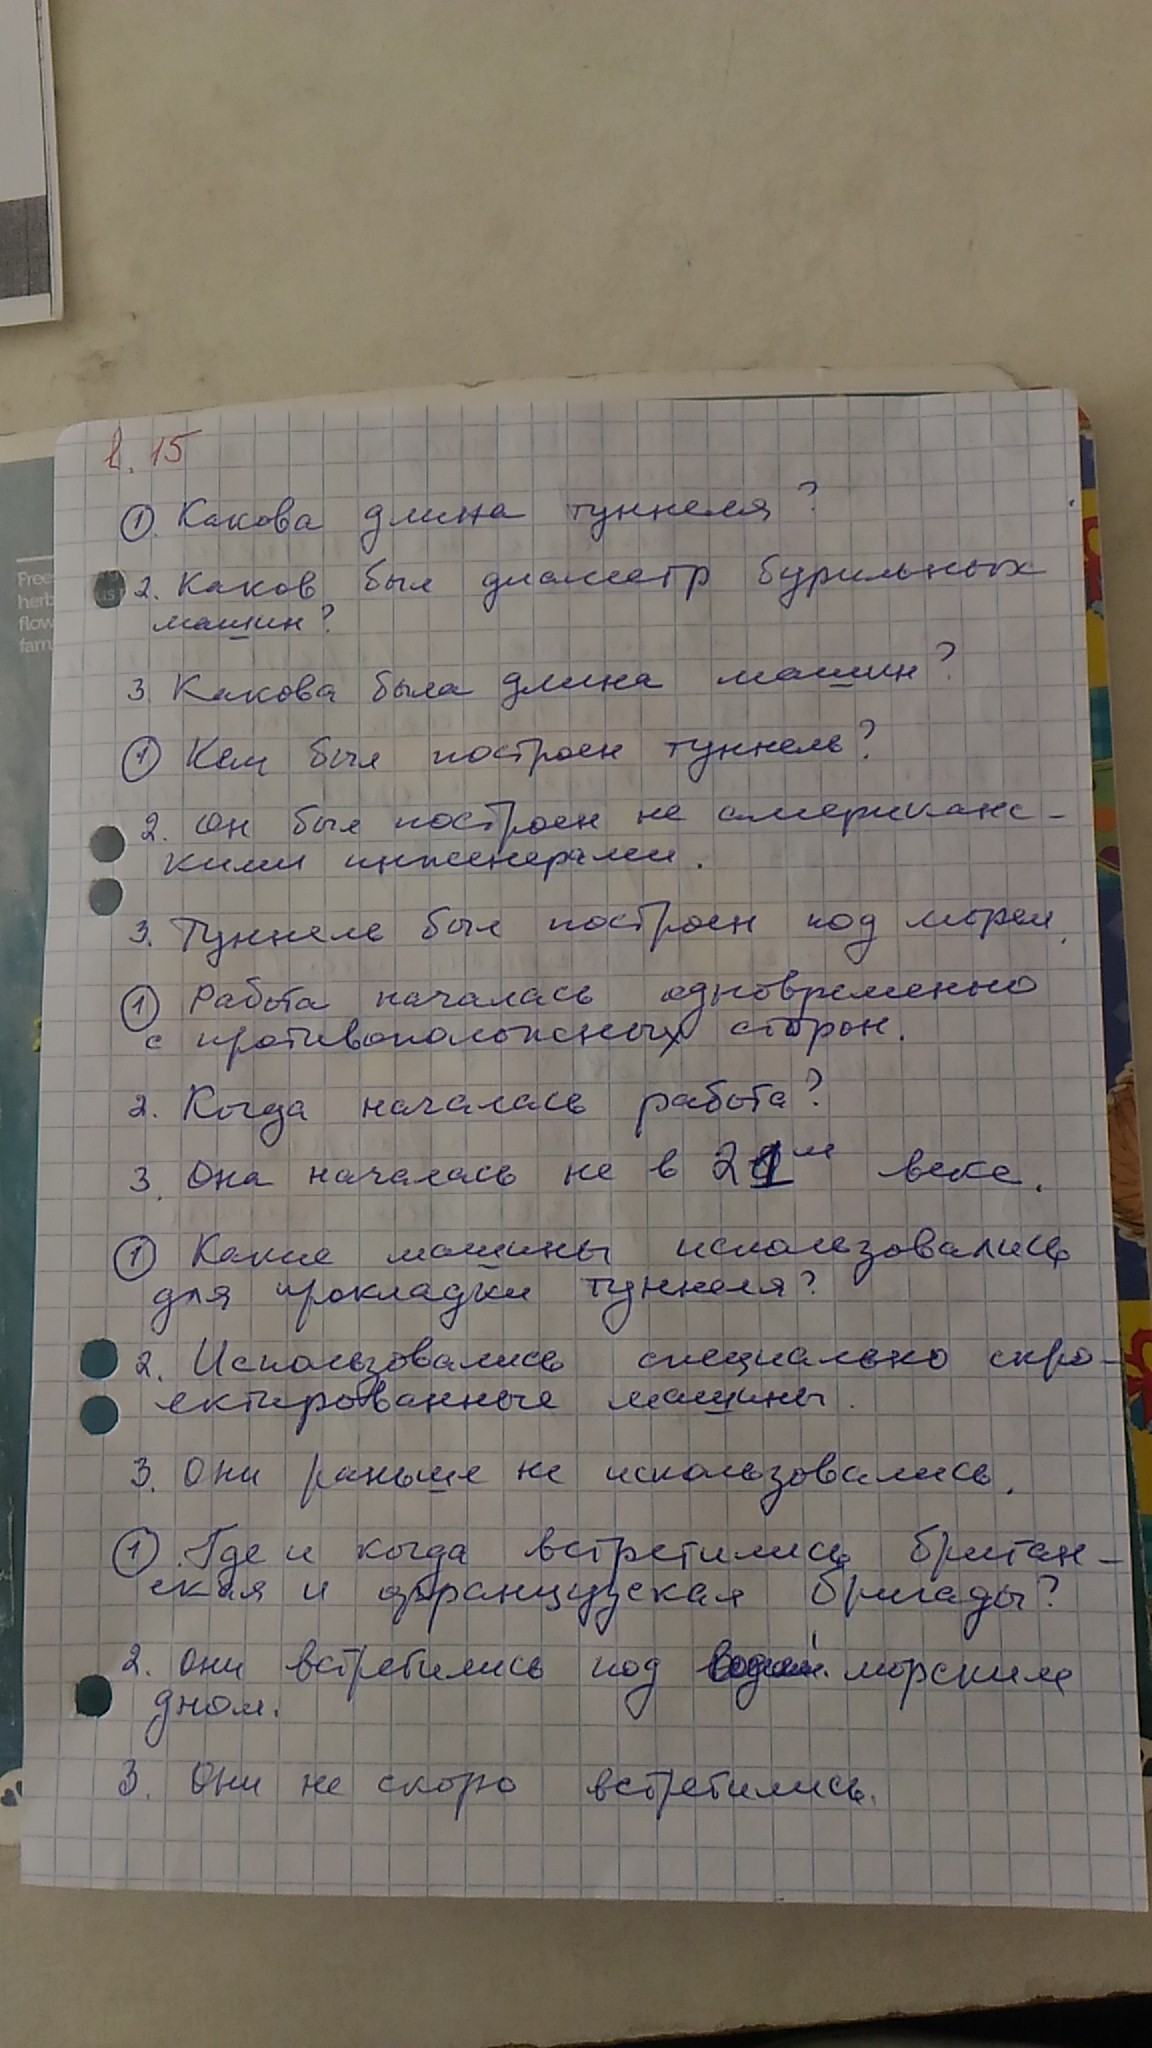 l. 15
①. Какова длина туннеля?
2. Каков был диаметр бурильных
машин?
3. Какова была длина машин?
① Кем был построен туннель?
2. Он был построен не американс-
кими инженерами.
3. Туннель был построен под морем.
① Работа началась одновременно
с противоположных сторон.
2. Когда началась работа?
3. Она началась не в 21ом веке.
① Какие машины использовались
для прокладки туннеля?
2. Использовались специально спро-
ектированные машины.
3. Они раньше не использовались.
① Где и когда встретились британ-
ская и французская бригады?
2. Они встретились под морским
дном.
3. Они не скоро встретились.
Frees
herb
flow
fam
us